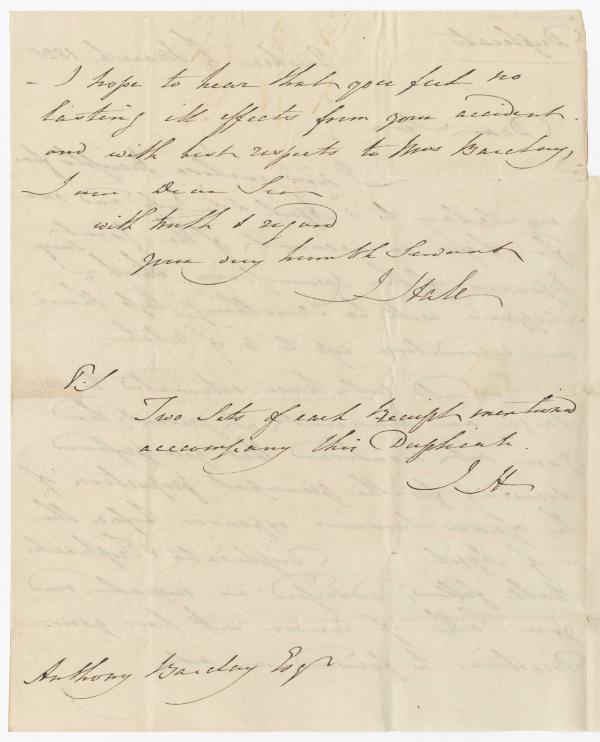 - I hope to hear that you feel no
lasting ill effects from your accident.
and with best respects to Mrs Barclay,
I am Dear Sir
with truth & regard
your very humble Servant
J Hale
P.S
Two Sets of each Receipt mentioned
accompany this Duplicate.
J. H.
Anthony Barclay Esqr